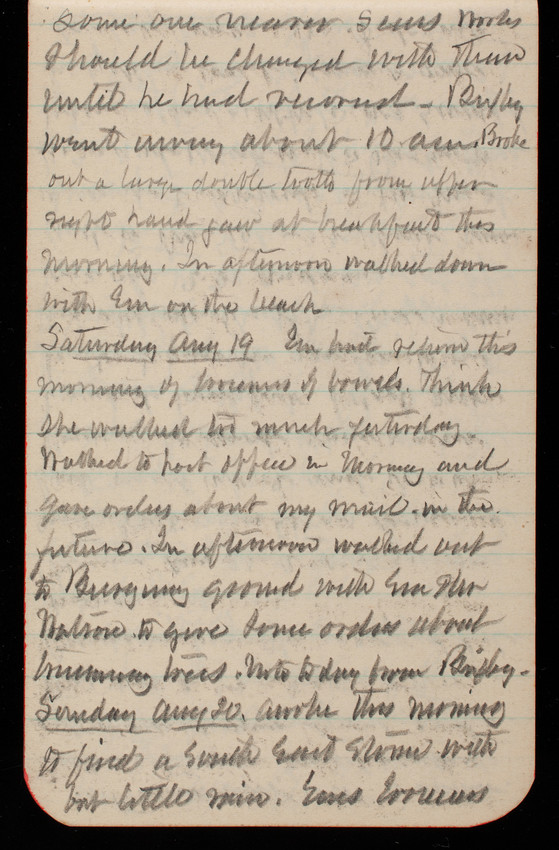 some one nearer Sems Works
Should be changed with them
until he had recovered - Bixby
went away about 10 am. Broke
out a large double tooth from upper
right hand jaw at breakfast this
morning. In afternoon walked down
with Em on the beach
Saturday Aug 19 Em had return this
morning of looseness of bowels. Think
she walked too much yesterday.
Walked to post office in Morning and
gave orders about my mail in the
future. In afternoon walked out
to Burying ground with Em &
Watson to give some orders about
trimming trees. Note today from Bixby.
Sunday Aug 20. awoke this morning
to find a South East Storm with
but little rain. Ems